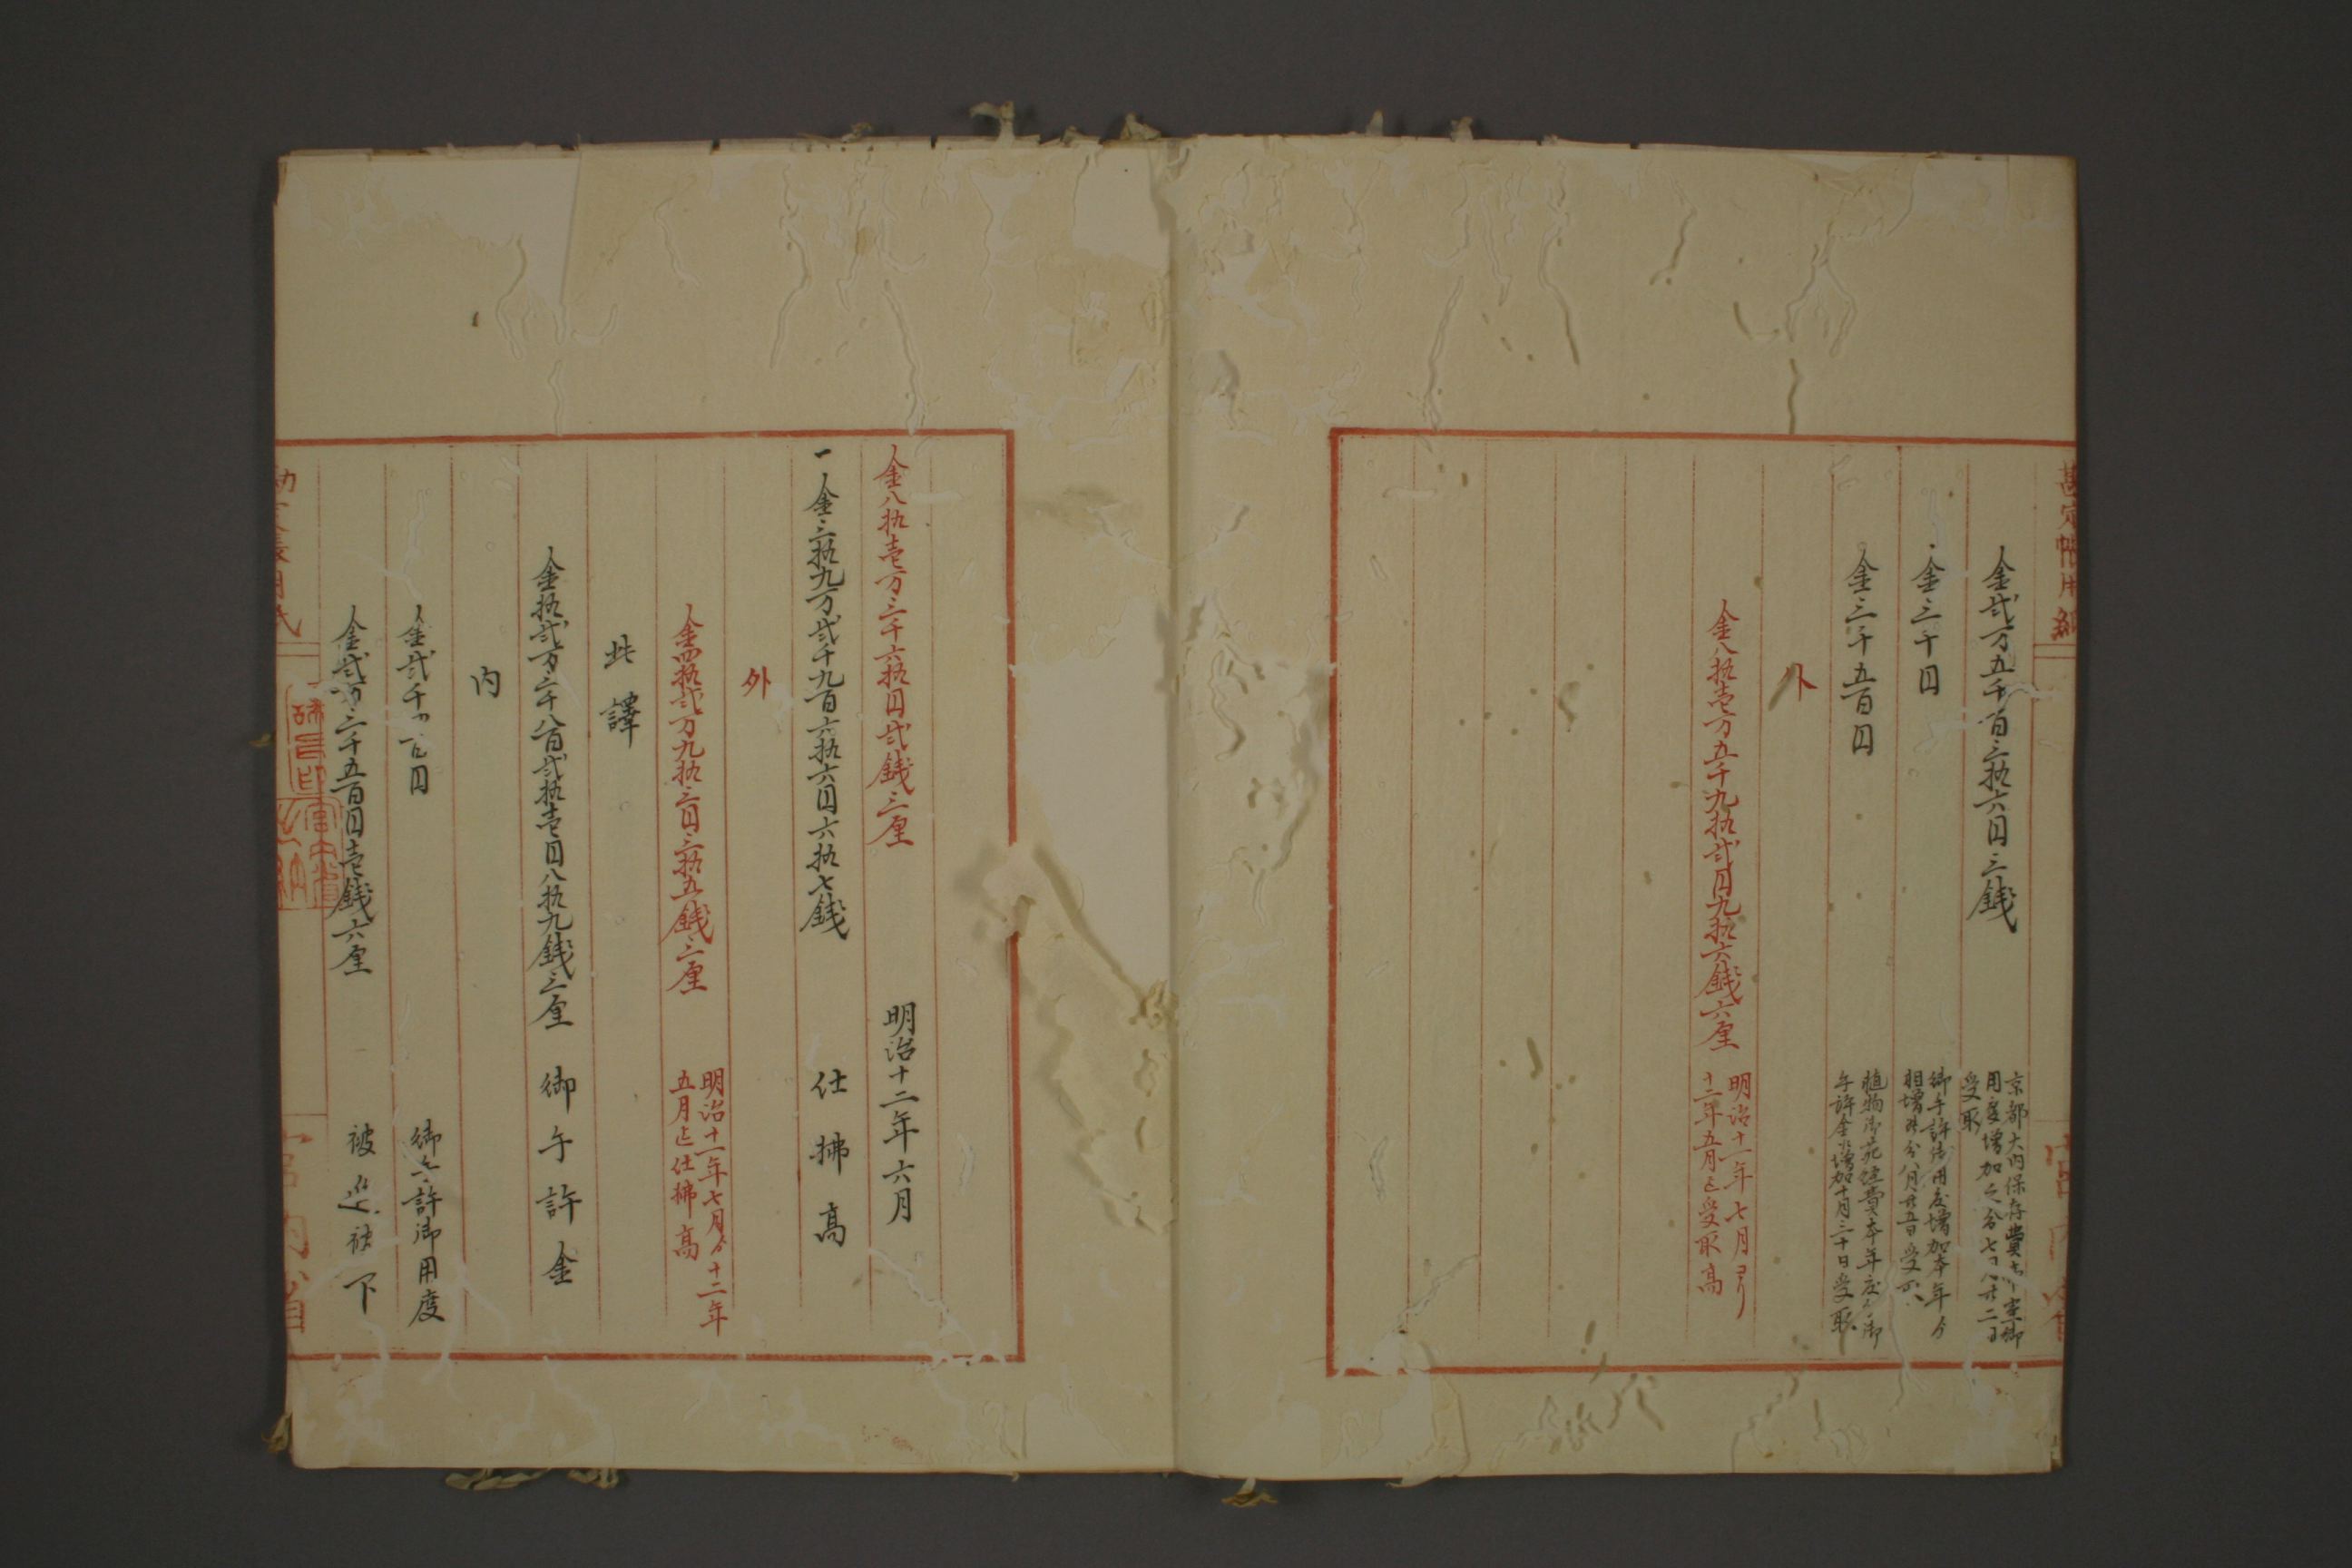 勘定帳用紙
金弐万五千百三拾六円三銭
京都大内保存費
用度増加之分
受取
金三千円
御手許御用度増加本年分
相増
金三千五百円
植物御苑経費本年度分御
手許金増加十月三十日受取
外
金八拾壱万五千九拾弐円九拾六銭六厘
明治十一年七月ヨリ
十二年五月迄受取高
宮内省
金八拾壱万三千六拾円弐銭三厘
明治十二年六月
一金三拾九万弐千九百六拾六円六拾七銭
仕拂高
外
金四拾弐万九拾三円三拾五銭三厘
明治十一年七月ゟ十二年
五月迄仕拂高
此譯
金拾弐万三千八百弐拾壱円八拾九銭三厘
御手許金
内
御手許御用度
金弐万三千五百円壱銭六厘
被進被下
宮内省